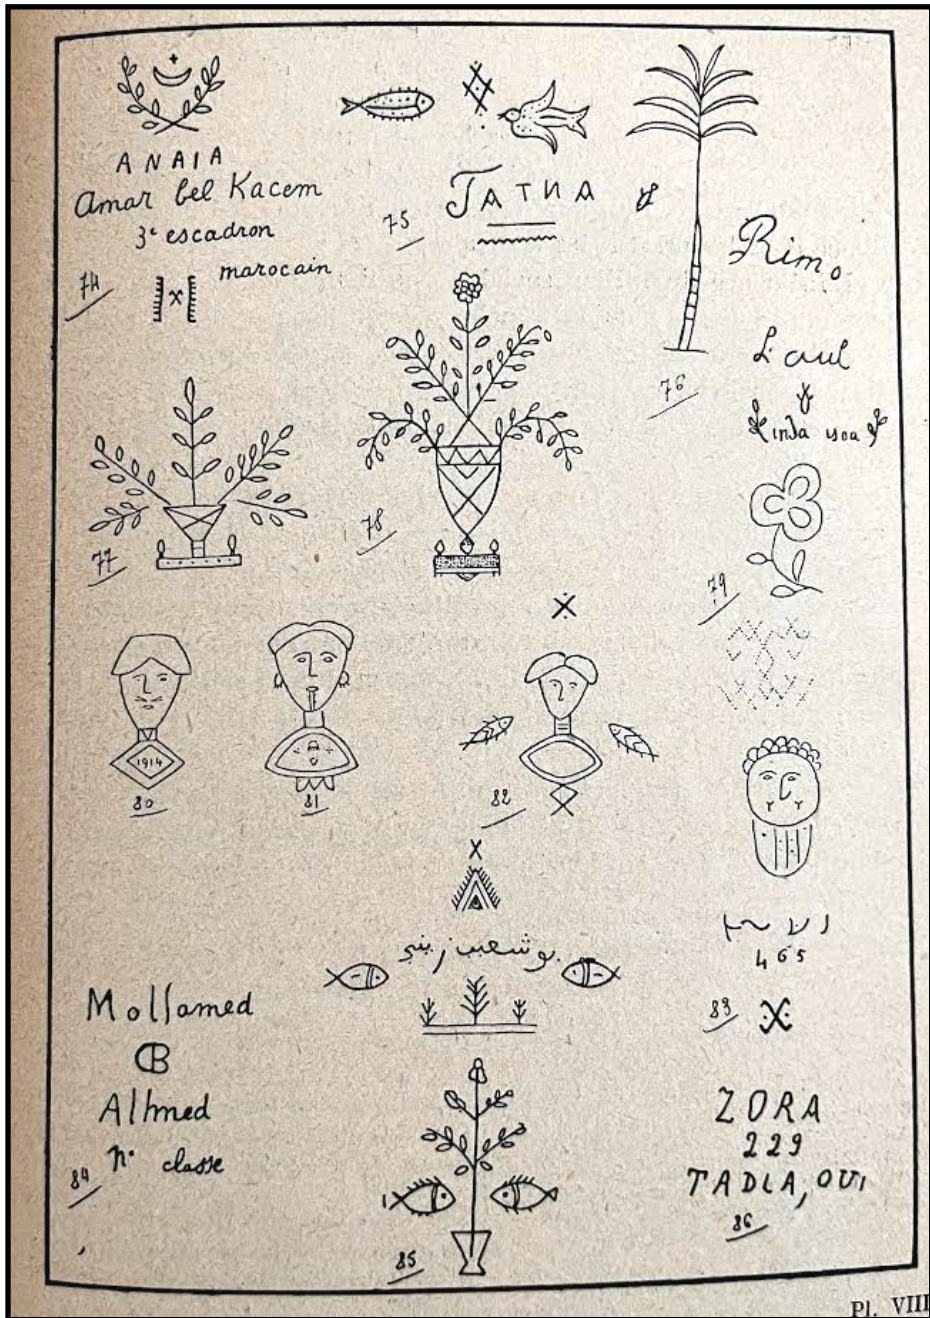 ANAIA
Amar bel Kacem
3e escadron
marocain
74
TATNA
75
Rimo
L'aul
76
77
78
79
1914
80
81
82
بوشعيب زيني
465
83
Mollamed
CB
Allmed
n° classe
84
85
ZORA
229
TADLA, OUI
86
Pl. VIII